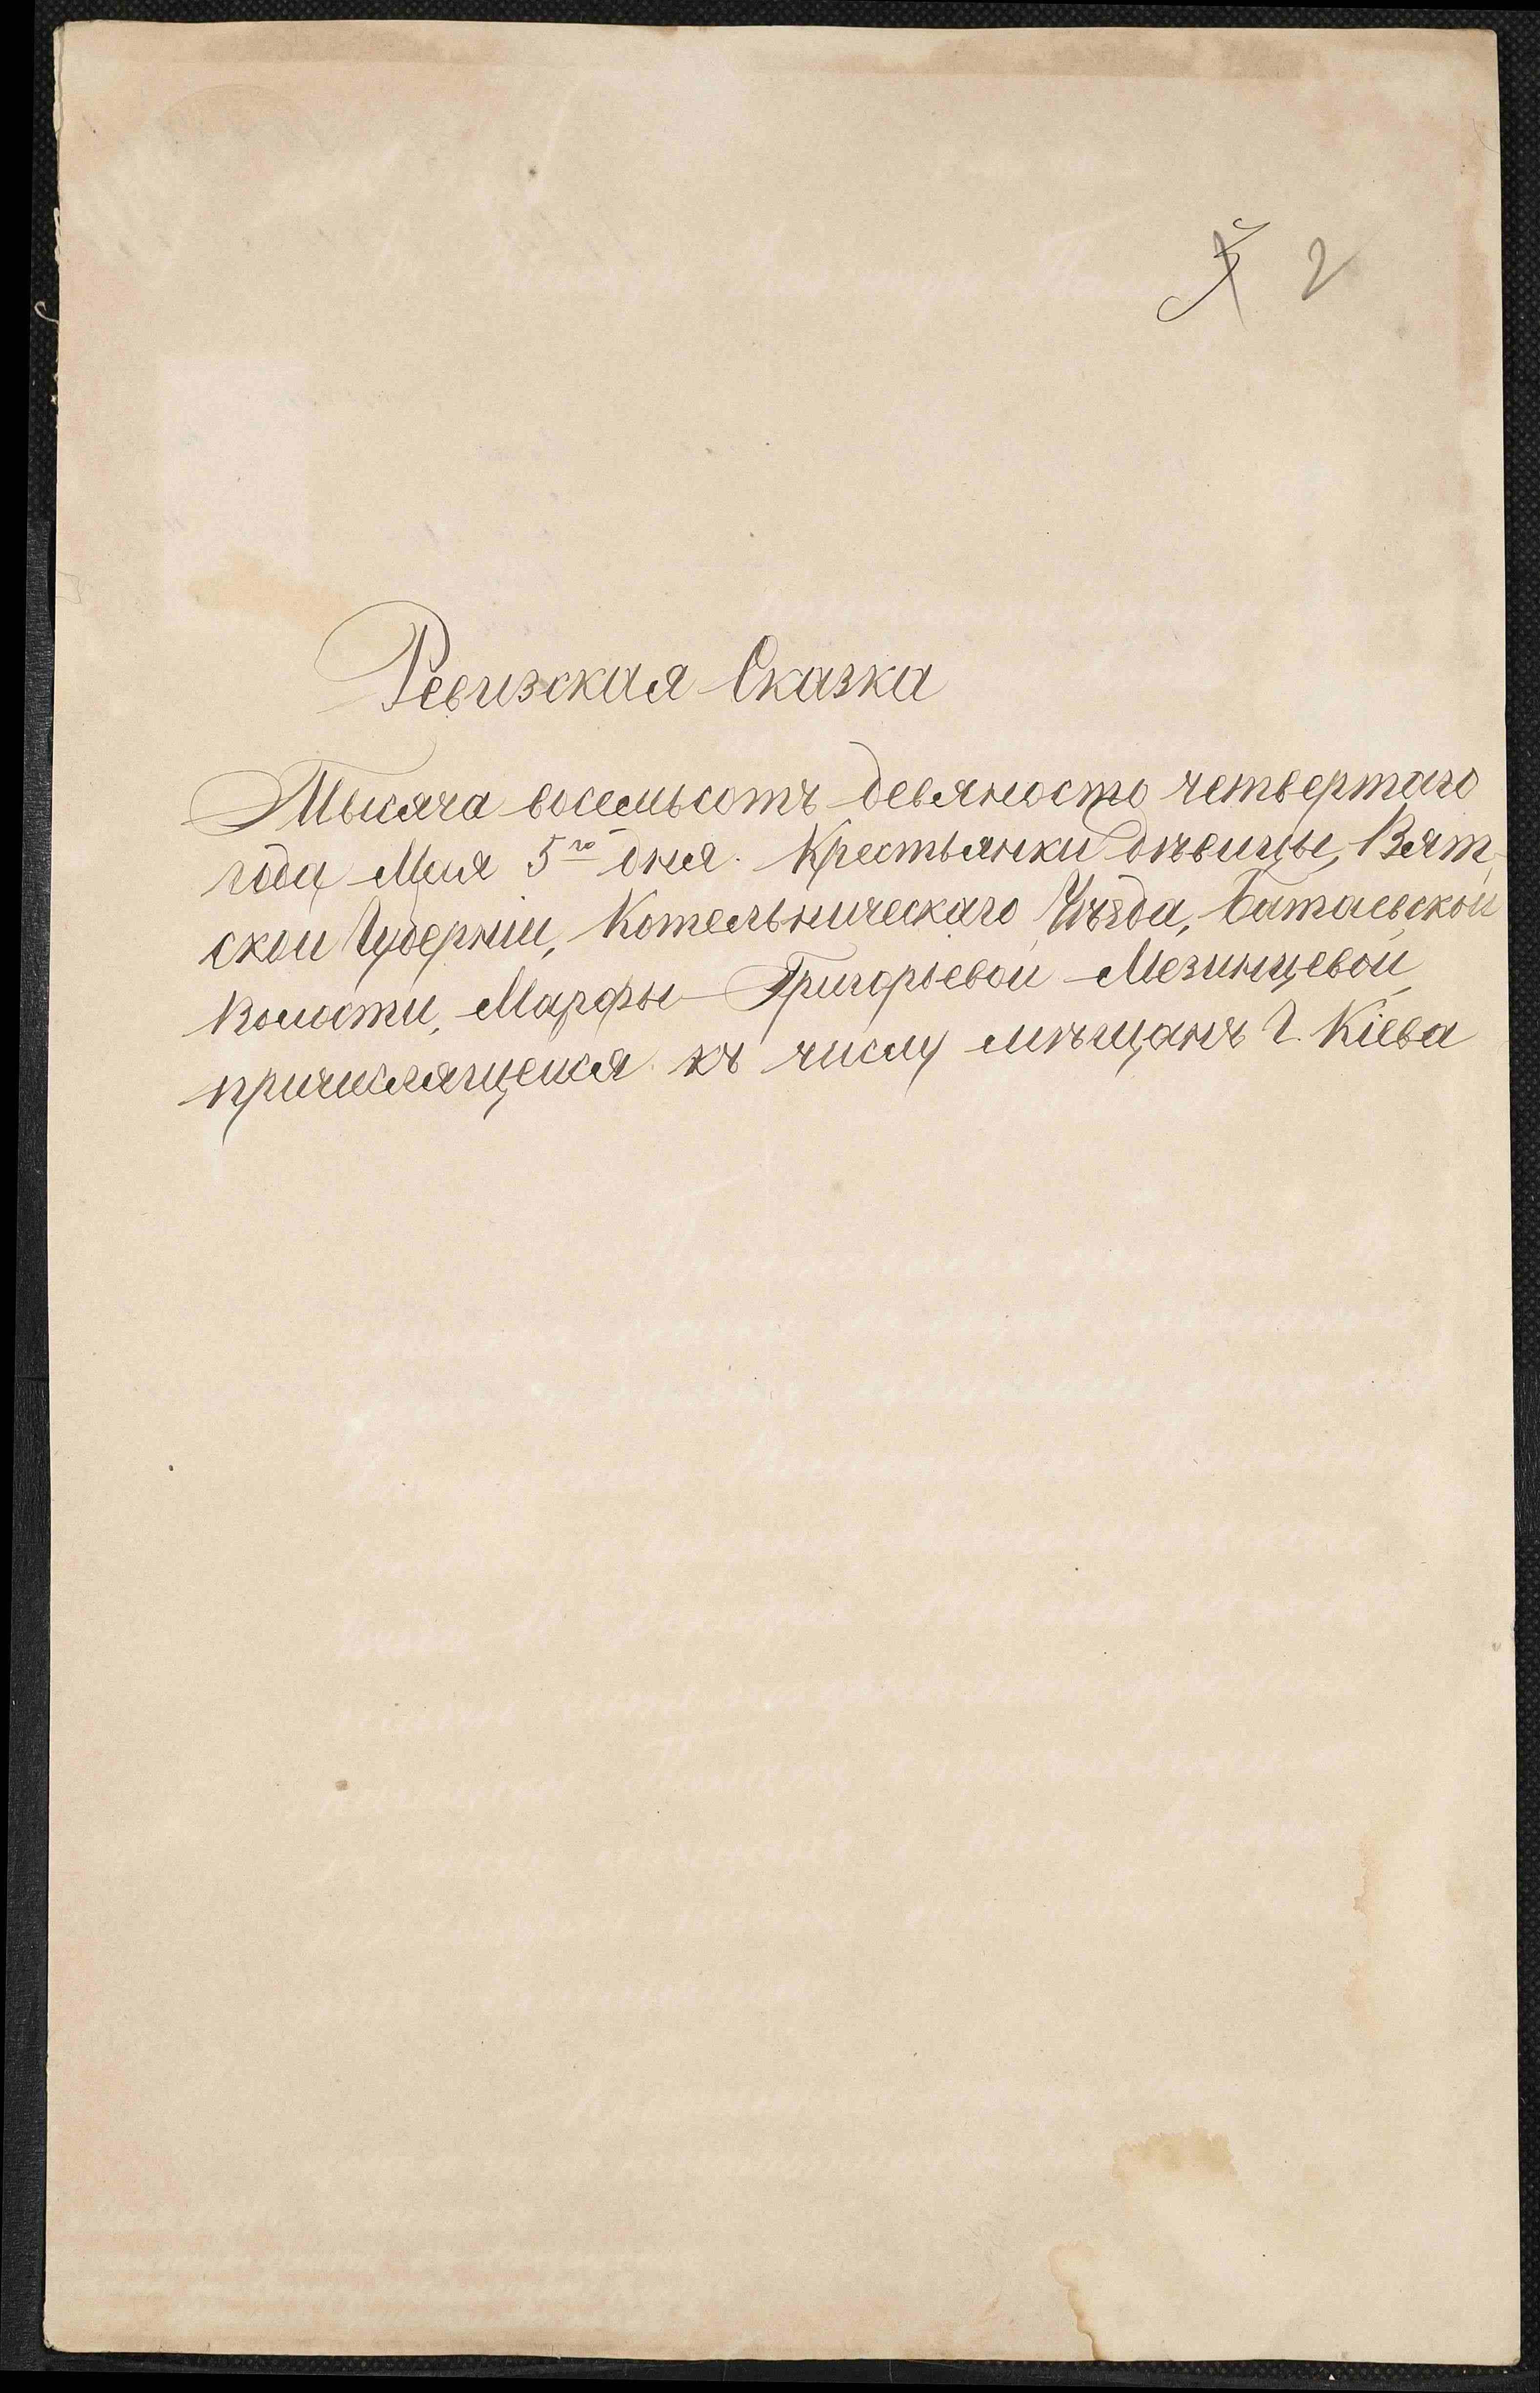 2
Ревизская Сказка
Тысяча восемьсотъ девяносто четвертаго
года Мая 5го дня. Крестьянки дѣвицы, Вят-
ской Губерніи, Котельническаго Уѣзда, Батаевской
Волости, Марфы Григорьевой Мезинцевой
причисляющейся къ числу мѣщанъ Г. Кіева